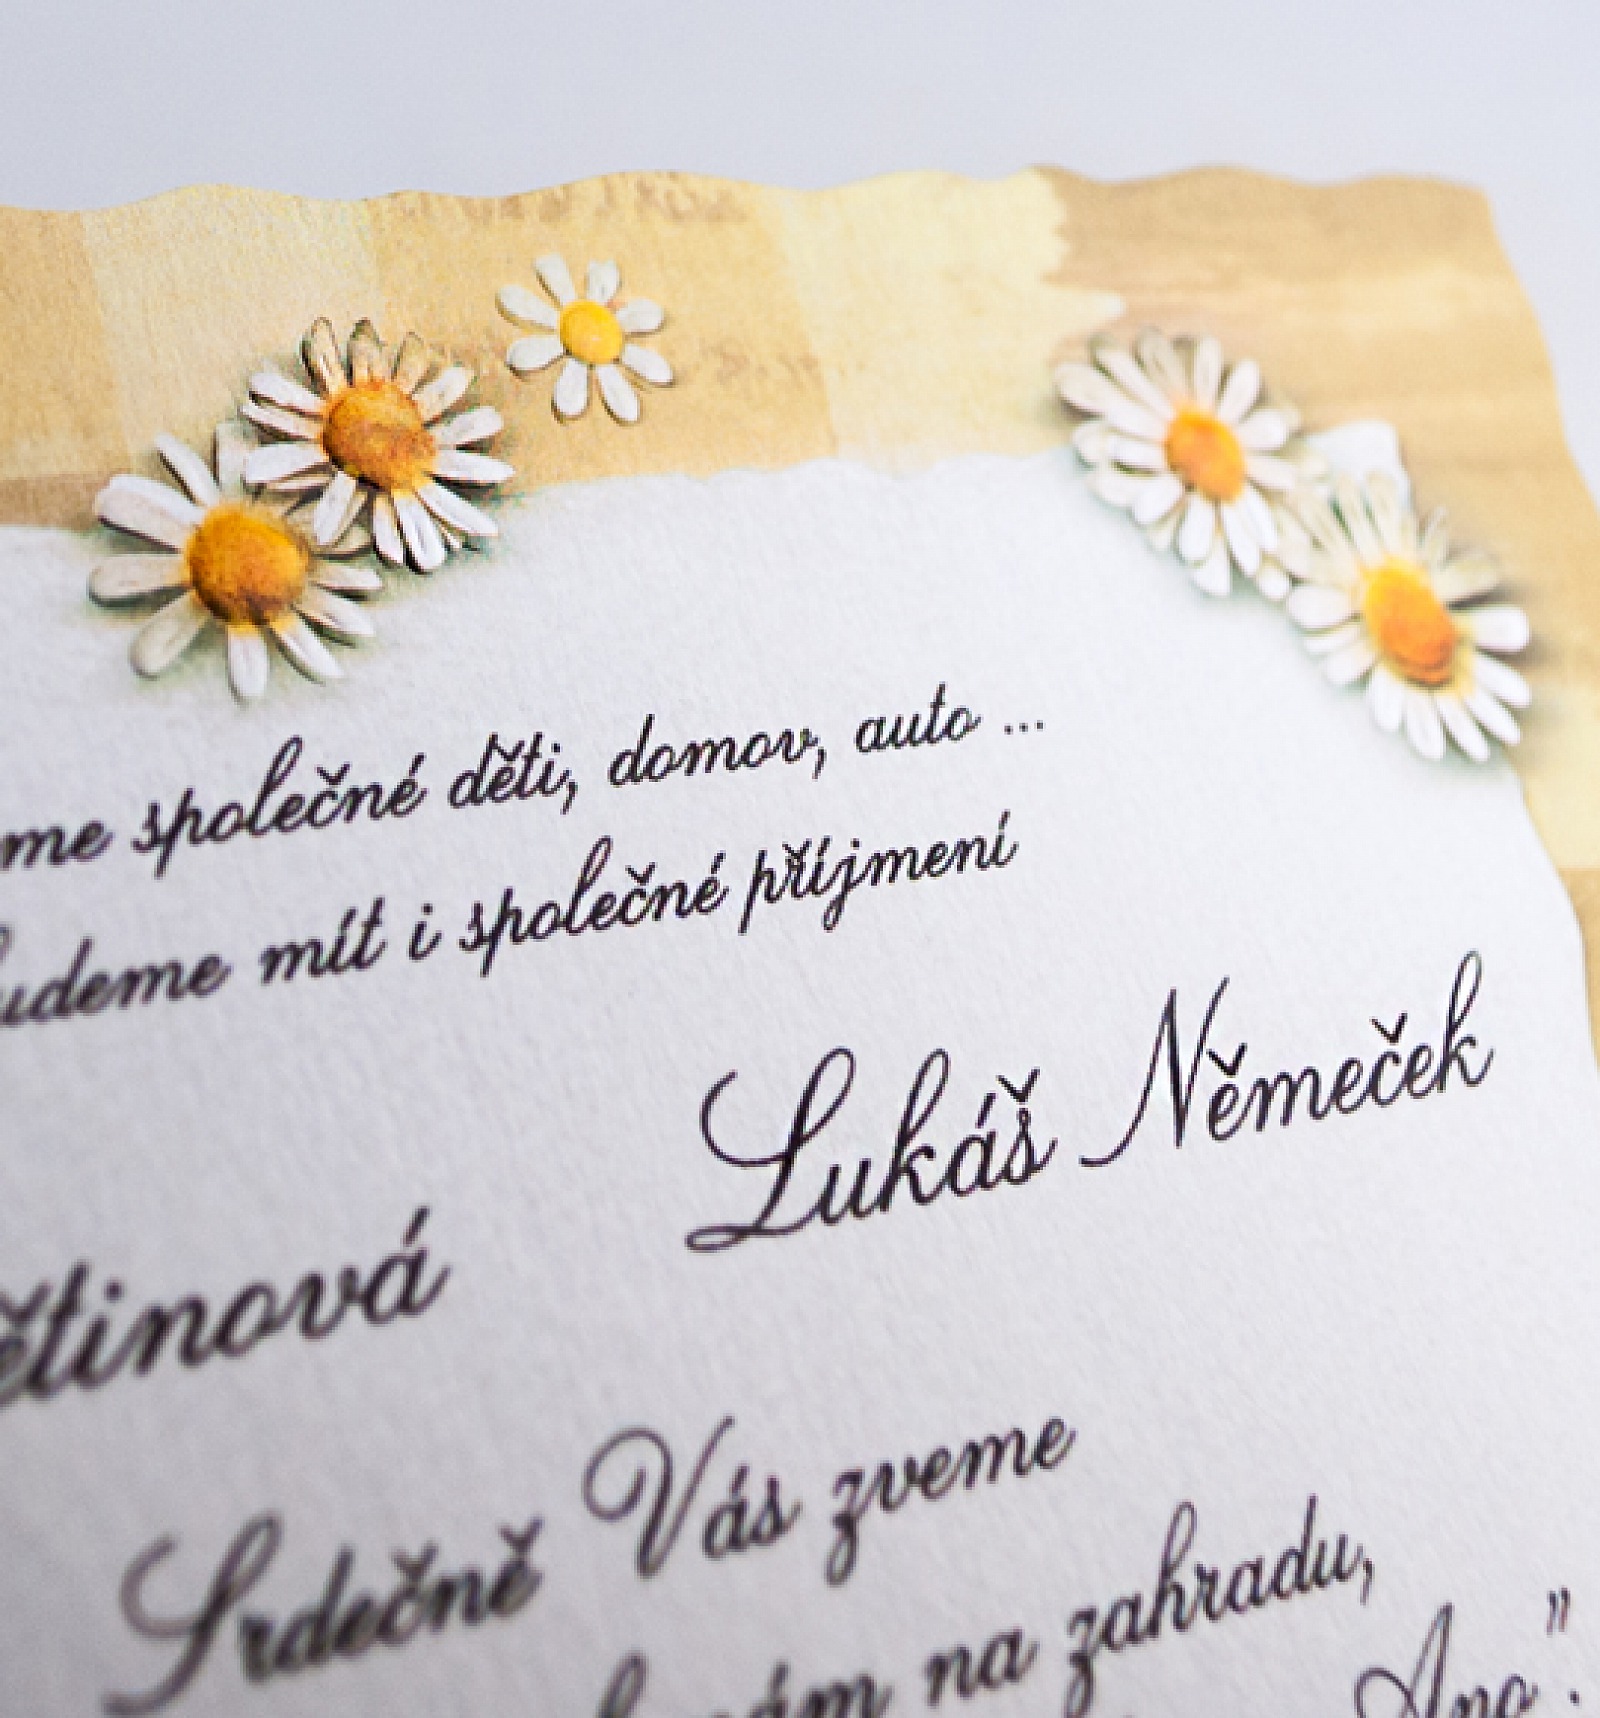 me společné děti, domov, auto ...
udeme mít i společné příjmení
Lukáš Němeček
ětinová
Srdečně Vás zveme
nám na zahradu,
Ano".